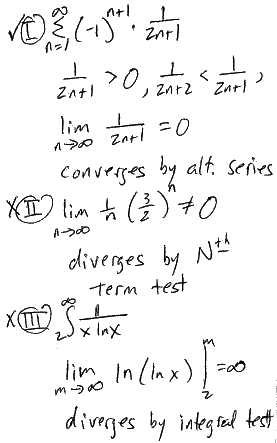 ✓Ⓘ ∞ Σ n=1 (-1)^{n+1} · 1/(2n+1)
1/(2n+1) > 0, 1/(2n+2) < 1/(2n+1),
lim n→∞ 1/(2n+1) = 0
converges by alt. series
XⓘⒾ lim n→∞ 1/n (3/2)^n ≠ 0
diverges by Nth
term test
X(III) ∞ ∫ 2 1/(x ln x)
lim m→∞ ln(ln x) |_2^m = ∞
diverges by integral test